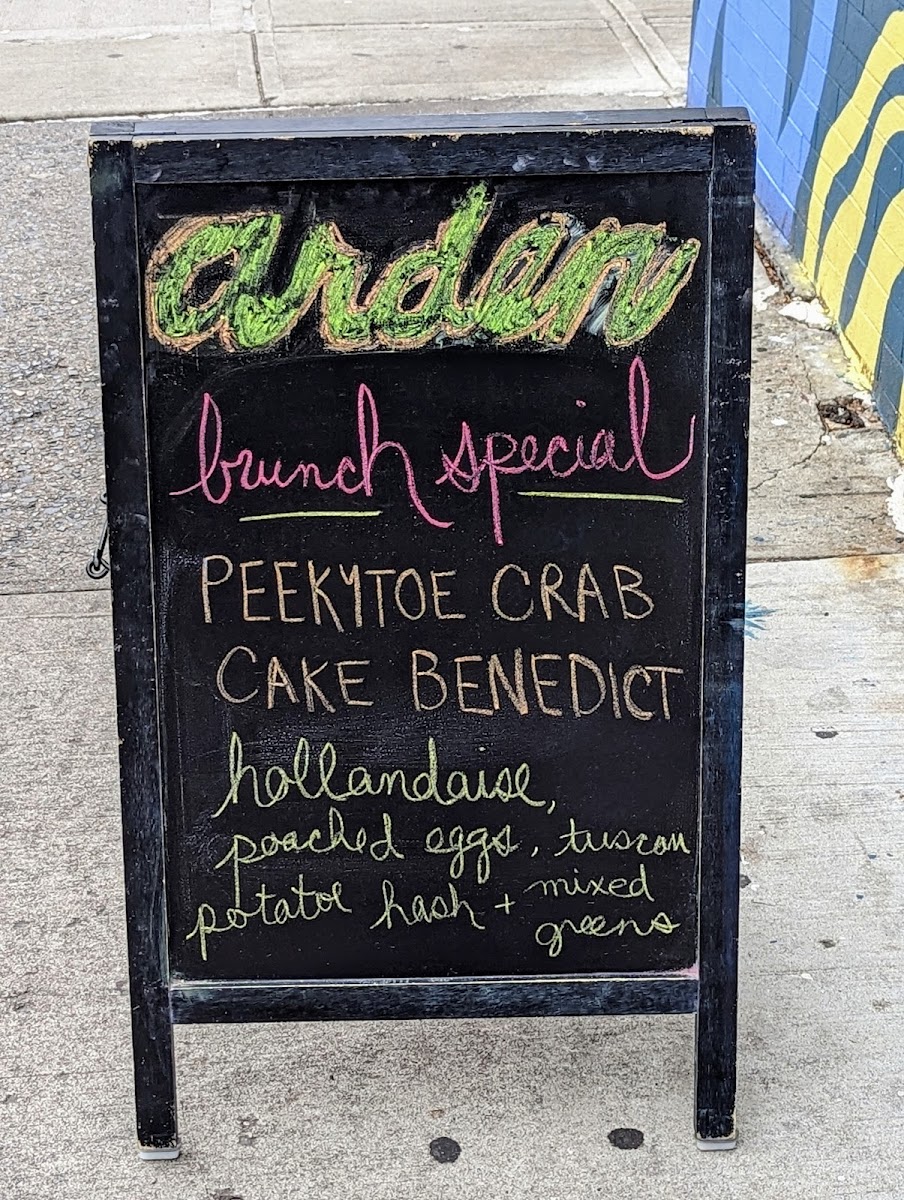 arden
brunch special
PEEKYTOE CRAB
CAKE BENEDICT
hollandaise,
poached eggs, tuscan
potatoe hash + mixed
greens